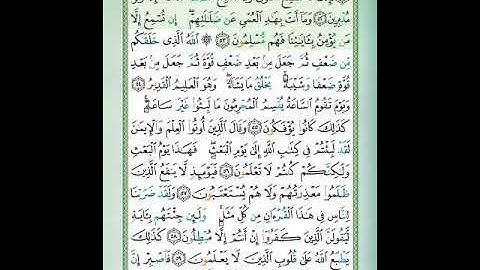 مُدْبِرِينَ ٥٢ وَمَا أَنتَ بِهَادِ الْعُمْيِ عَن ضَلَالَتِهِمْ إِن تُسْمِعُ إِلَّا
مَن يُؤْمِنُ بِآيَاتِنَا فَهُم مُّسْلِمُونَ ٥٣ اللَّهُ الَّذِي خَلَقَكُم
مِّن ضَعْفٍ ثُمَّ جَعَلَ مِنۢ بَعْدِ ضَعْفٍ قُوَّةً ثُمَّ جَعَلَ مِنۢ بَعْدِ
قُوَّةٍ ضَعْفًا وَشَيْبَةً يَخْلُقُ مَا يَشَاءُ وَهُوَ الْعَلِيمُ الْقَدِيرُ ٥٤
وَيَوْمَ تَقُومُ السَّاعَةُ يُقْسِمُ الْمُجْرِمُونَ مَا لَبِثُوا غَيْرَ سَاعَةٍ
كَذَٰلِكَ كَانُوا يُؤْفَكُونَ ٥٥ وَقَالَ الَّذِينَ أُوتُوا الْعِلْمَ وَالْإِيمَٰنَ
لَقَدْ لَبِثْتُمْ فِي كِتَٰبِ اللَّهِ إِلَىٰ يَوْمِ الْبَعْثِ فَهَٰذَا يَوْمُ الْبَعْثِ
وَلَٰكِنَّكُمْ كُنتُمْ لَا تَعْلَمُونَ ٥٦ فَيَوْمَئِذٍ لَّا يَنفَعُ الَّذِينَ
ظَلَمُوا مَعْذِرَتُهُمْ وَلَا هُمْ يُسْتَعْتَبُونَ ٥٧ وَلَقَدْ ضَرَبْنَا
لِلنَّاسِ فِي هَٰذَا الْقُرْءَانِ مِن كُلِّ مَثَلٍ وَلَئِن جِئْتَهُم بِـَٔايَةٍ
لَّيَقُولَنَّ الَّذِينَ كَفَرُوا إِنْ أَنتُمْ إِلَّا مُبْطِلُونَ ٥٨ كَذَٰلِكَ
يَطْبَعُ اللَّهُ عَلَىٰ قُلُوبِ الَّذِينَ لَا يَعْلَمُونَ ٥٩ فَاصْبِرْ إِنَّ